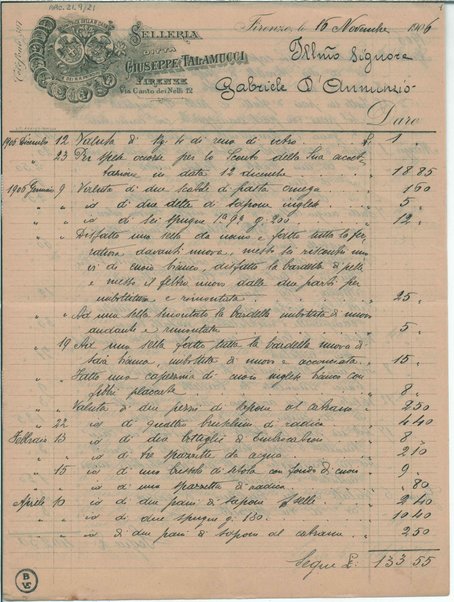 ARC. 21. 9/21
Telefono 307
SELLERIA
DITTA
GIUSEPPE TALAMUCCI
FIRENZE
Via Canto dei Nelli 12
Firenze, lo 16 Novembre 1906
Illmo Signore
Gabriele D'Annunzio
Dare
1905 Dicembre 12 Valuta di Kg. 4 di £ 1 "
" " 23 Per spese occorse per lo Sconto della Sua accet-
tazione in data 12 dicembre " 18 85
1906 Gennaio 9 Valuta di due scatole di pasta omega " 1 60
" " " id di due dette di sapone inglese " 5 "
" " " id di sei spugne " 12 "
" " " Disfatto una sella da uomo e fatto tutta la
davanti nuova, messo
di cuoio bianco, disfatto la bardella di pelle
e messo il feltro nuovo dalle due parti per
imbottitura e rimontata " 25 "
" " " Ad una sella smontato la bardella imbottita di nuovo
e rimontata " 5 "
" " 19 Ad una sella fatto tutta la bardella nuova di
bianca, imbottita di nuovo e acconciata " 15 "
" " " Fatto una di cuoio inglese bianco con
fibbie placcate " 8 "
" " " Valuta di due pezzi di sapone al catrame " 2 50
" " 22 id di quattro bruschini di radica " 4 40
Febbraio 13 id di due bottiglie di Embrocation " 8 "
" " " id di tre spazzette da acqua " 2 10
" " 15 id di una bussola di setola con fondo di cuoio " 9 "
" " " id di una spazzetta di radica " " 80
Aprile 10 id di due pani di sapone p selle " 2 40
" " " id di due spugne g. 130. " 10 40
" " " id di due pani di sapone al catrame " 2 50
Segue £. 133 55